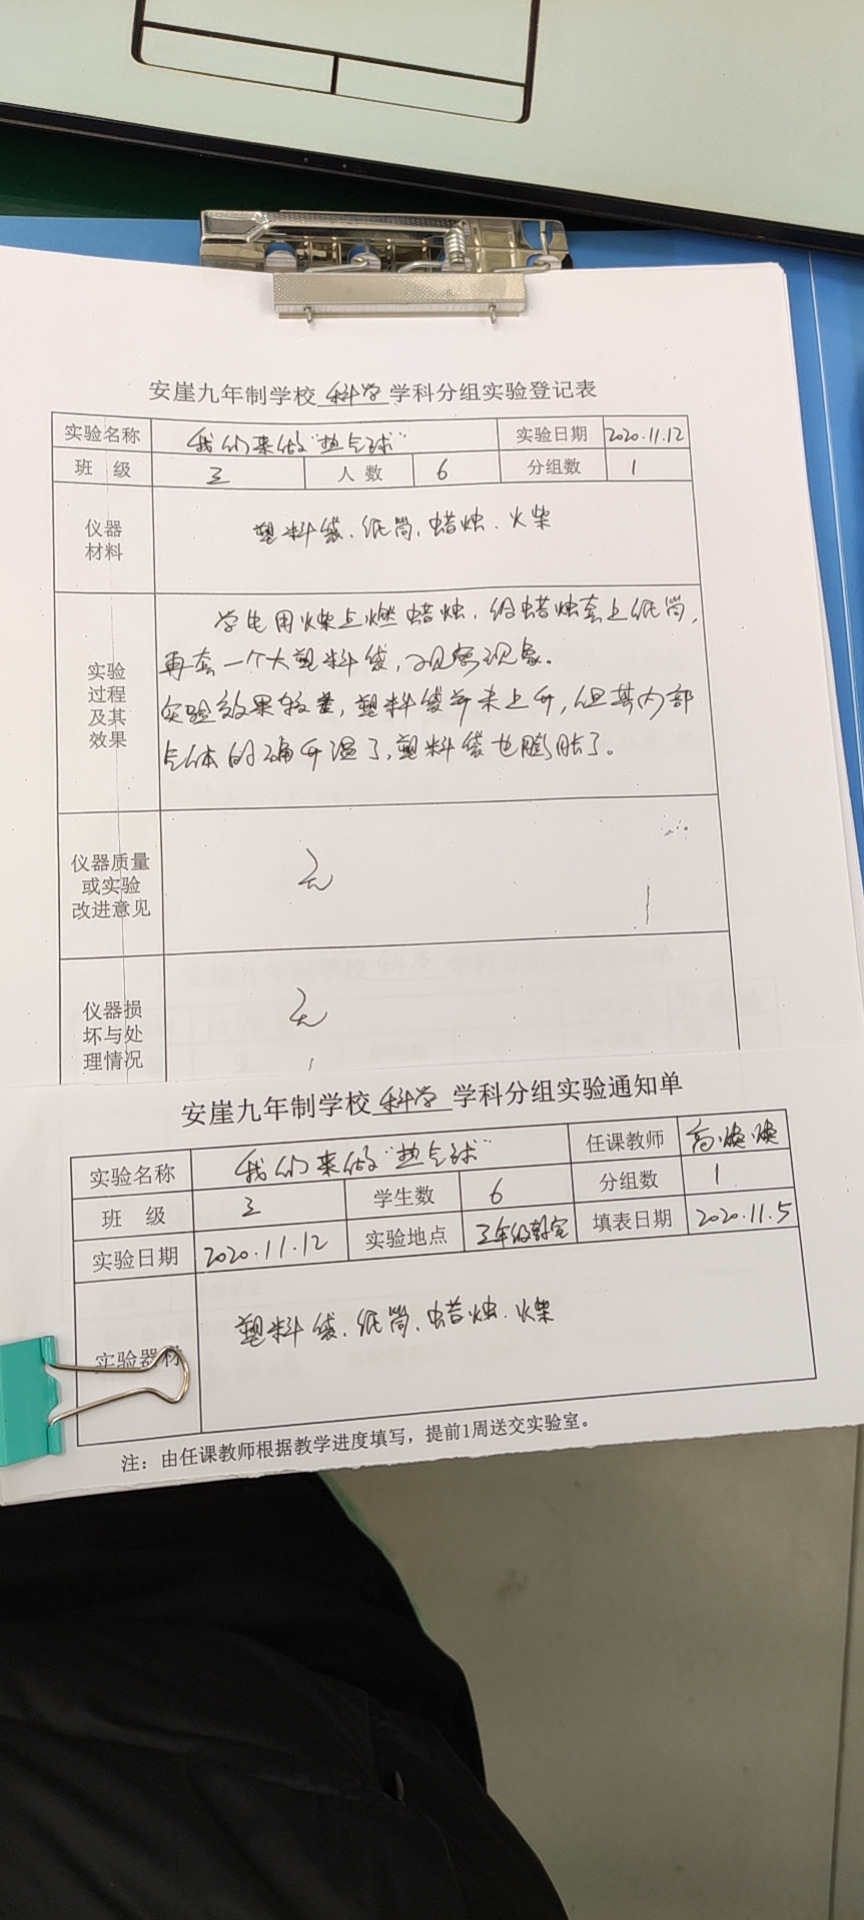 安崖九年制学校 科学 学科分组实验登记表
实验名称 我们来做"热气球" 实验日期 2020.11.12
班 级 三 人 数 6 分组数 1
仪器材料 塑料袋、纸筒、蜡烛、火柴
实验过程及其效果
学生用火柴点燃蜡烛，给蜡烛套上纸筒，
再套一个大塑料袋，观察现象。
实验效果较差，塑料袋并未上升，但其内部
气体的确升温了，塑料袋也膨胀了。
仪器质量或实验改进意见 无
仪器损坏与处理情况 无
安崖九年制学校 科学 学科分组实验通知单
实验名称 我们来做"热气球" 任课教师 高焕焕
班 级 三 学生数 6 分组数 1
实验日期 2020.11.12 实验地点 三年级教室 填表日期 2020.11.5
实验器材 塑料袋、纸筒、蜡烛、火柴
注：由任课教师根据教学进度填写，提前1周送交实验室。